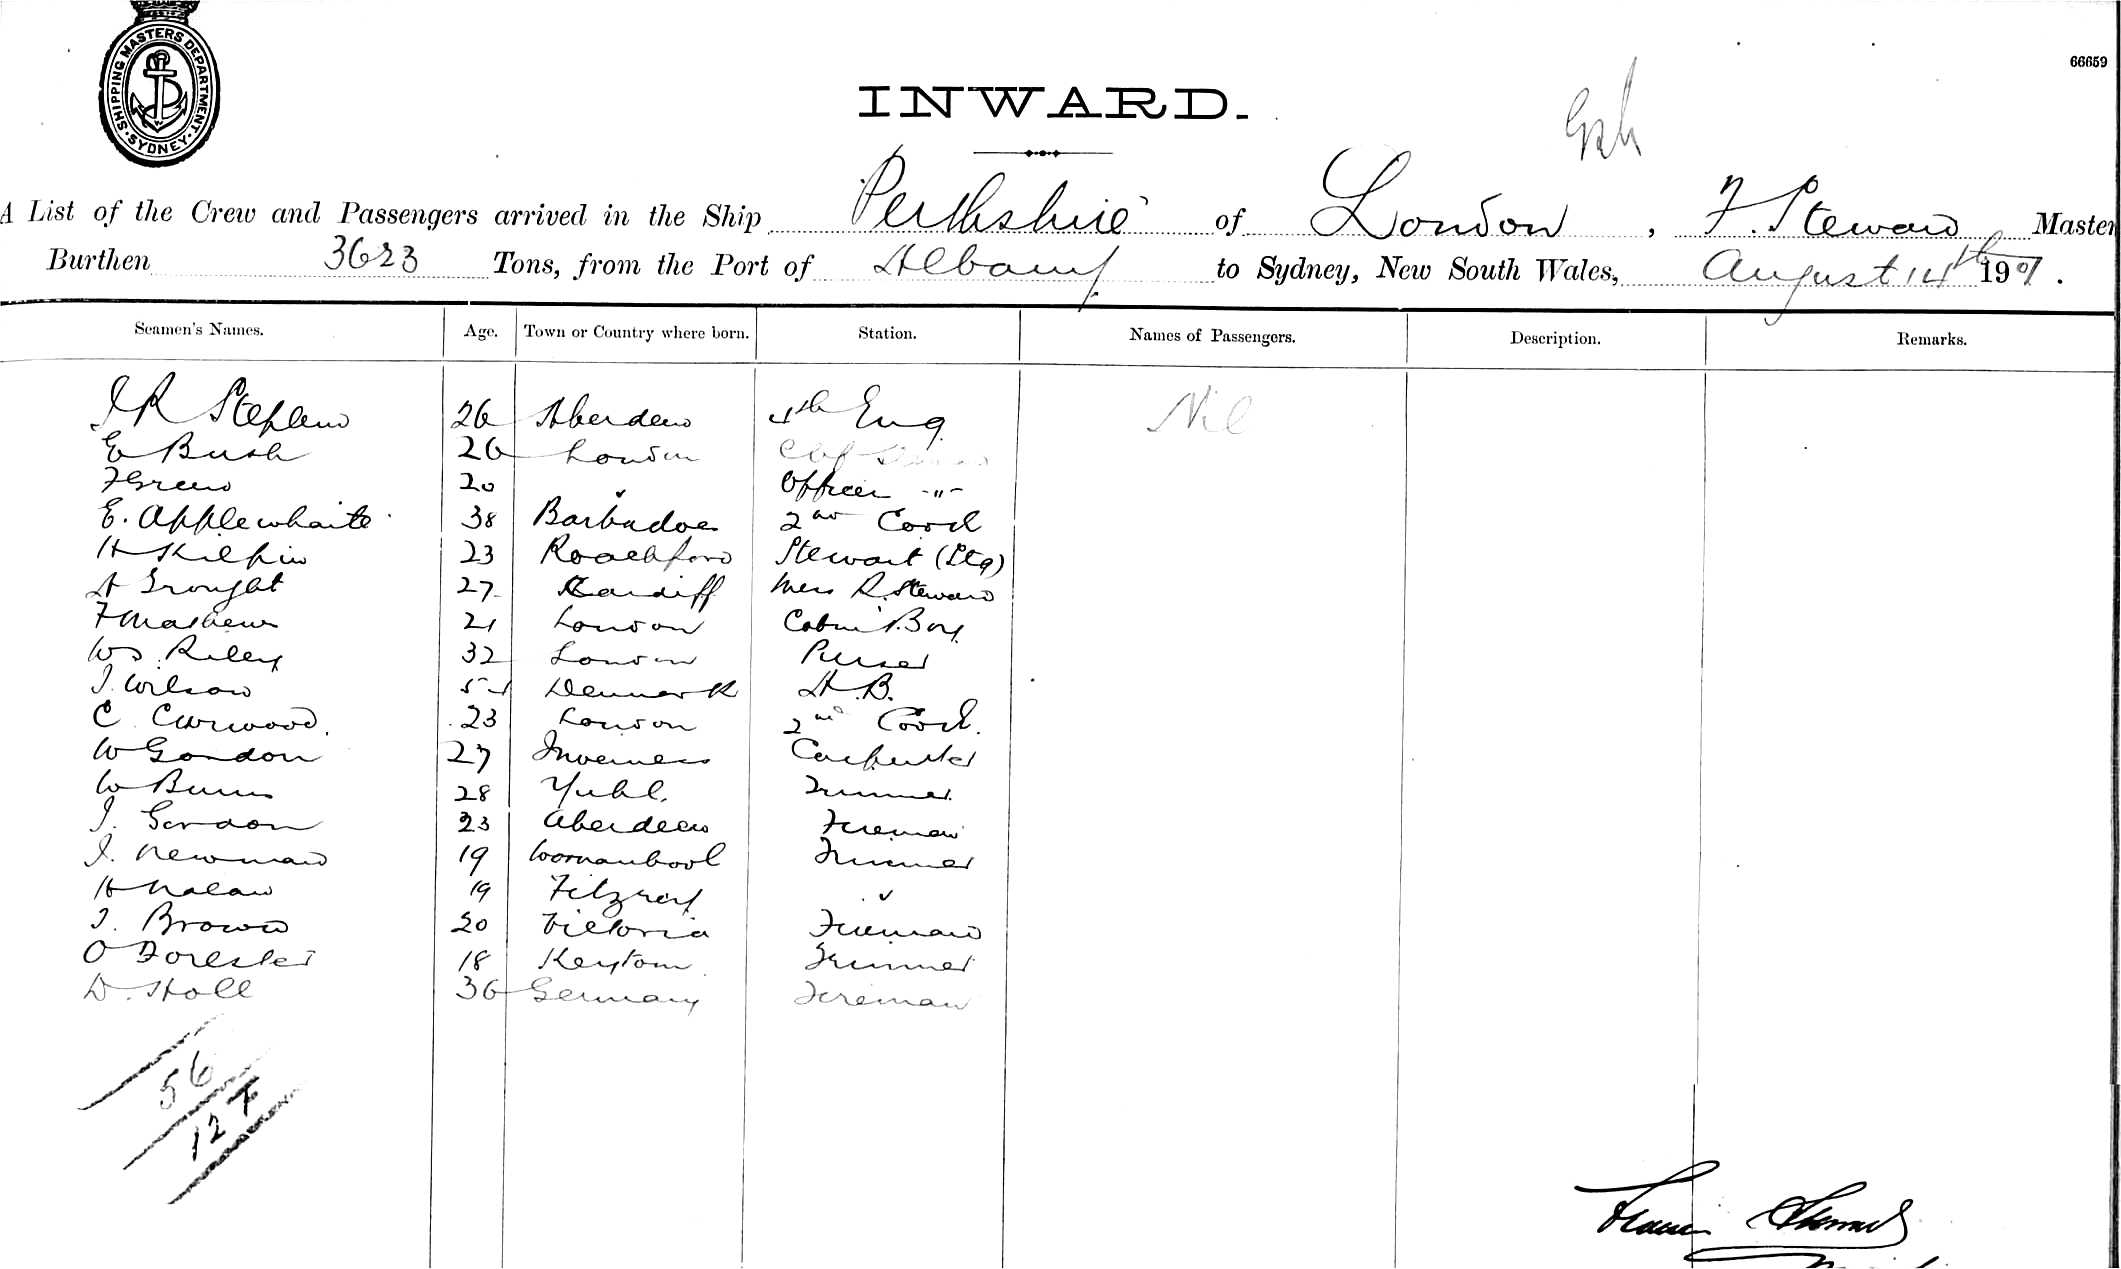 SHIPPING MASTERS DEPARTMENT
SYDNEY
66659
INWARD.
A List of the Crew and Passengers arrived in the Ship Perthshire of London, F. Steward Master
Burthen 3623 Tons, from the Port of Albany to Sydney, New South Wales, August 14th 1901.
Seamen's Names. Age. Town or Country where born. Station. Names of Passengers. Description. Remarks.
J R Stephens 26 Aberdeen 4th Eng. Nil
E Bush 26 London
F Green 20 " Officers -"-
E. Applewhaite 38 Barbadoes 2nd Cook
H Kilpin 23 Roachford Stewart (Stg)
A Trought 27 Cardiff Mess R. Steward
F Mathews 21 London Cabin Boy
W S. Riley 32 London Purser
J. Wilson Denmark A.B.
C Curwood. 23 London 2nd Cook.
W Gordon 27 Inverness Carpenter
W Burns 28 Trimmer
J. Gordon 23 Aberdeen Fireman
J. Newman 19 Worrnanbool Trimmer
H Nolan 19 Fitzroy "
J. Brown 20 Victoria Fireman
O Forester 18 Trimmer
D. Holl 36 Germany Fireman
56
12
Francis Steward